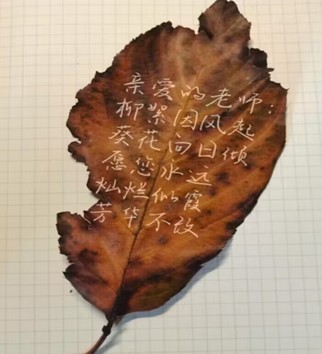 亲爱的老师:
柳絮因风起
葵花向日倾
愿您永远
灿烂似霞
芳华不败